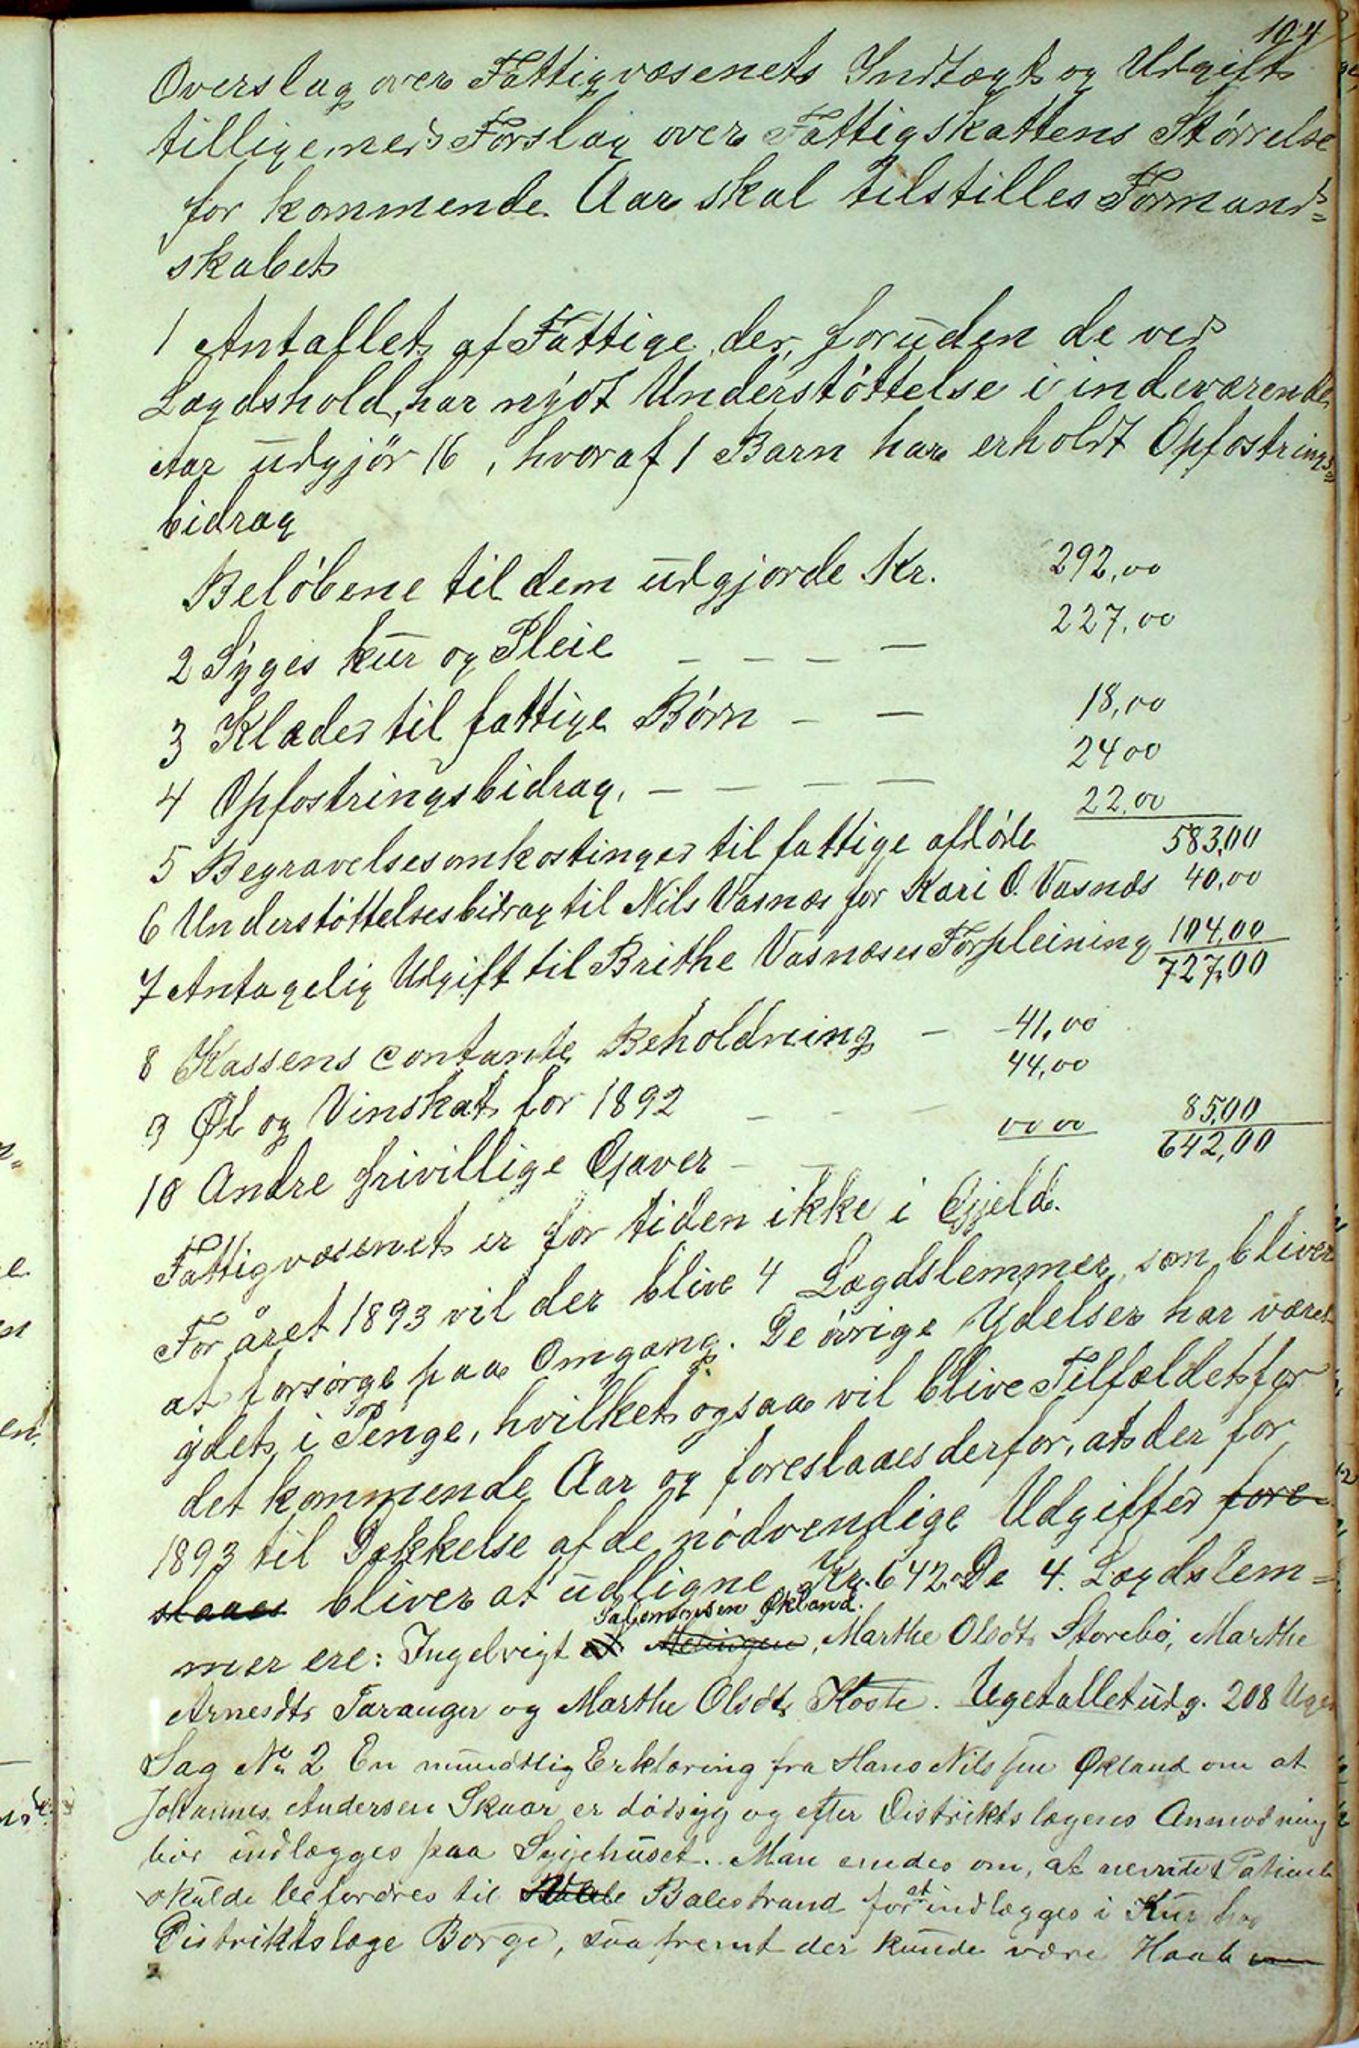 104
Overslag over Fattigvæsenets Indtægt og Udgift
tilligemed Forslag over Fattigskattens Størrelse
for kommende Aar skal tilstilles Formand=
skabet
1 Antallet af Fattige der, foruden de ved
Lægdshold, har nydt Understøttelse i indeværende
Aar udgjør 16, hvoraf 1 Barn har erholdt Opfostrings=
bidrag
Beløbene til dem udgjorde Kr. 292,00
2 Syges kur og Pleie — — — — 227,00
3 Klæder til fattige Børn — — 18,00
4 Opfostringsbidrag. — — — — 24 00
5 Begravelsesomkostinger til fattige afdøde 22,00 583,00
6 Understøttelsesbidrag til Nils Vasnæs for Kari O. Vasnæs 40,00
7 Antagelig Udgift til Brithe Vasnæses Forpleining 104,00
727,00
8 Kassens contante Beholdning — 41,00
9 Øl og Vinskat for 1892 — — — 44,00
10 Andre frivillige Gaver — — 00 00 85,00
642,00
Fattigvæsenet er for tiden ikke i Gjeld.
For året 1893 vil der blive 4 Lægdslemmer som bliver
at forsørge paa Omgang. De øvrige Ydelser har været
ydet i Penge, hvilket ogsaa vil blive Tilfældet for
det kommende Aar og foreslaaes derfor, at der for
1893 til Dækkelse af de nødvendige Udgifter fore-
slaaes bliver at udligne Kr. 642. De 4. Lægdslem=
Salomonsen Økland.
mer ere: Ingelvigt Melingen, Marthe Olsdt Storebø, Marthe
Arnesdt Taranger og Marthe Olsdt Koste. Ugetallet udg. 208 Uger
Sag No 2 En mundtlig Erklæring fra Hans Nilssen Økland om at
Johannes Andersen Skaar er dødssyg og efter Distriktslægens Anmodning
bør indlægges paa Sygehuset. Man enedes om, at nevnte Patient
skulde befordres til Balestrand for at indlægges i Kur hos
Distriktslæge Borge, saafremt der kunde være Haab